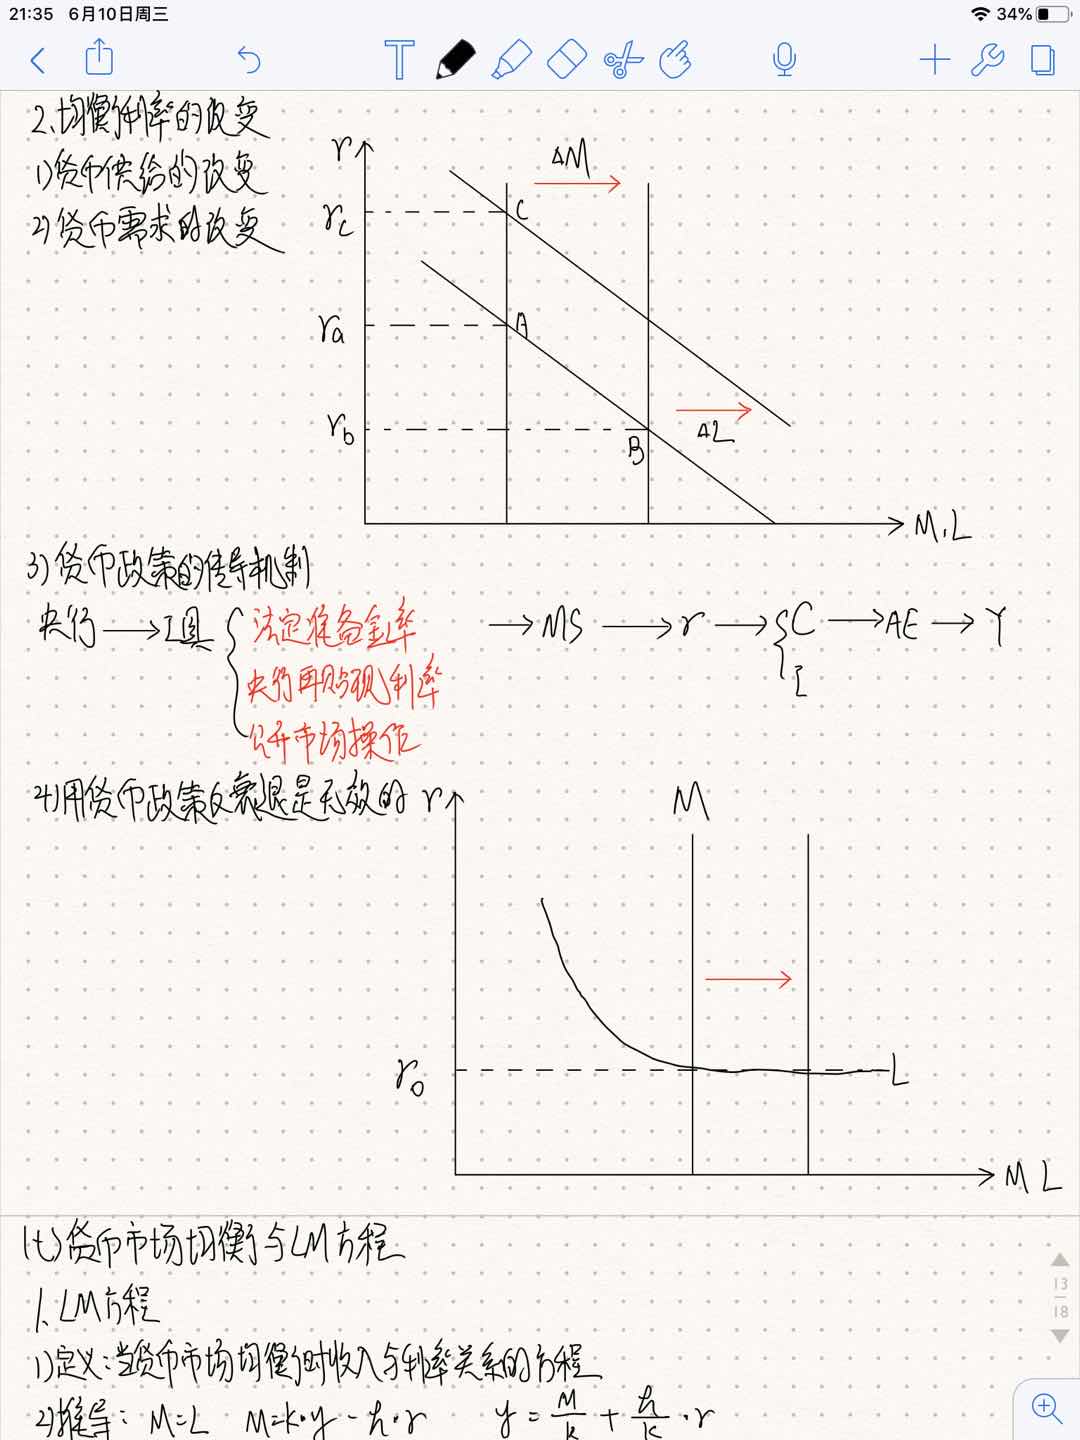 21:35 6月10日周三 34%
T
2、均衡利率的改变
1)货币供给的改变
2)货币需求的改变
r
ΔM
rc
C
ra
A
rb
B
ΔL
M,L
3)货币政策的传导机制
央行→工具{法定准备金率 →MS→r→{C→AE→Y
央行再贴现利率 I
公开市场操作
4)用货币政策反衰退是无效的 r
M
r0
L
M L
(七)货币市场均衡与LM方程
1、LM方程
1)定义:当货币市场均衡时收入与利率关系的方程
2)推导: M=L M=k·y-h·r y=M/k+h/k·r
13
18